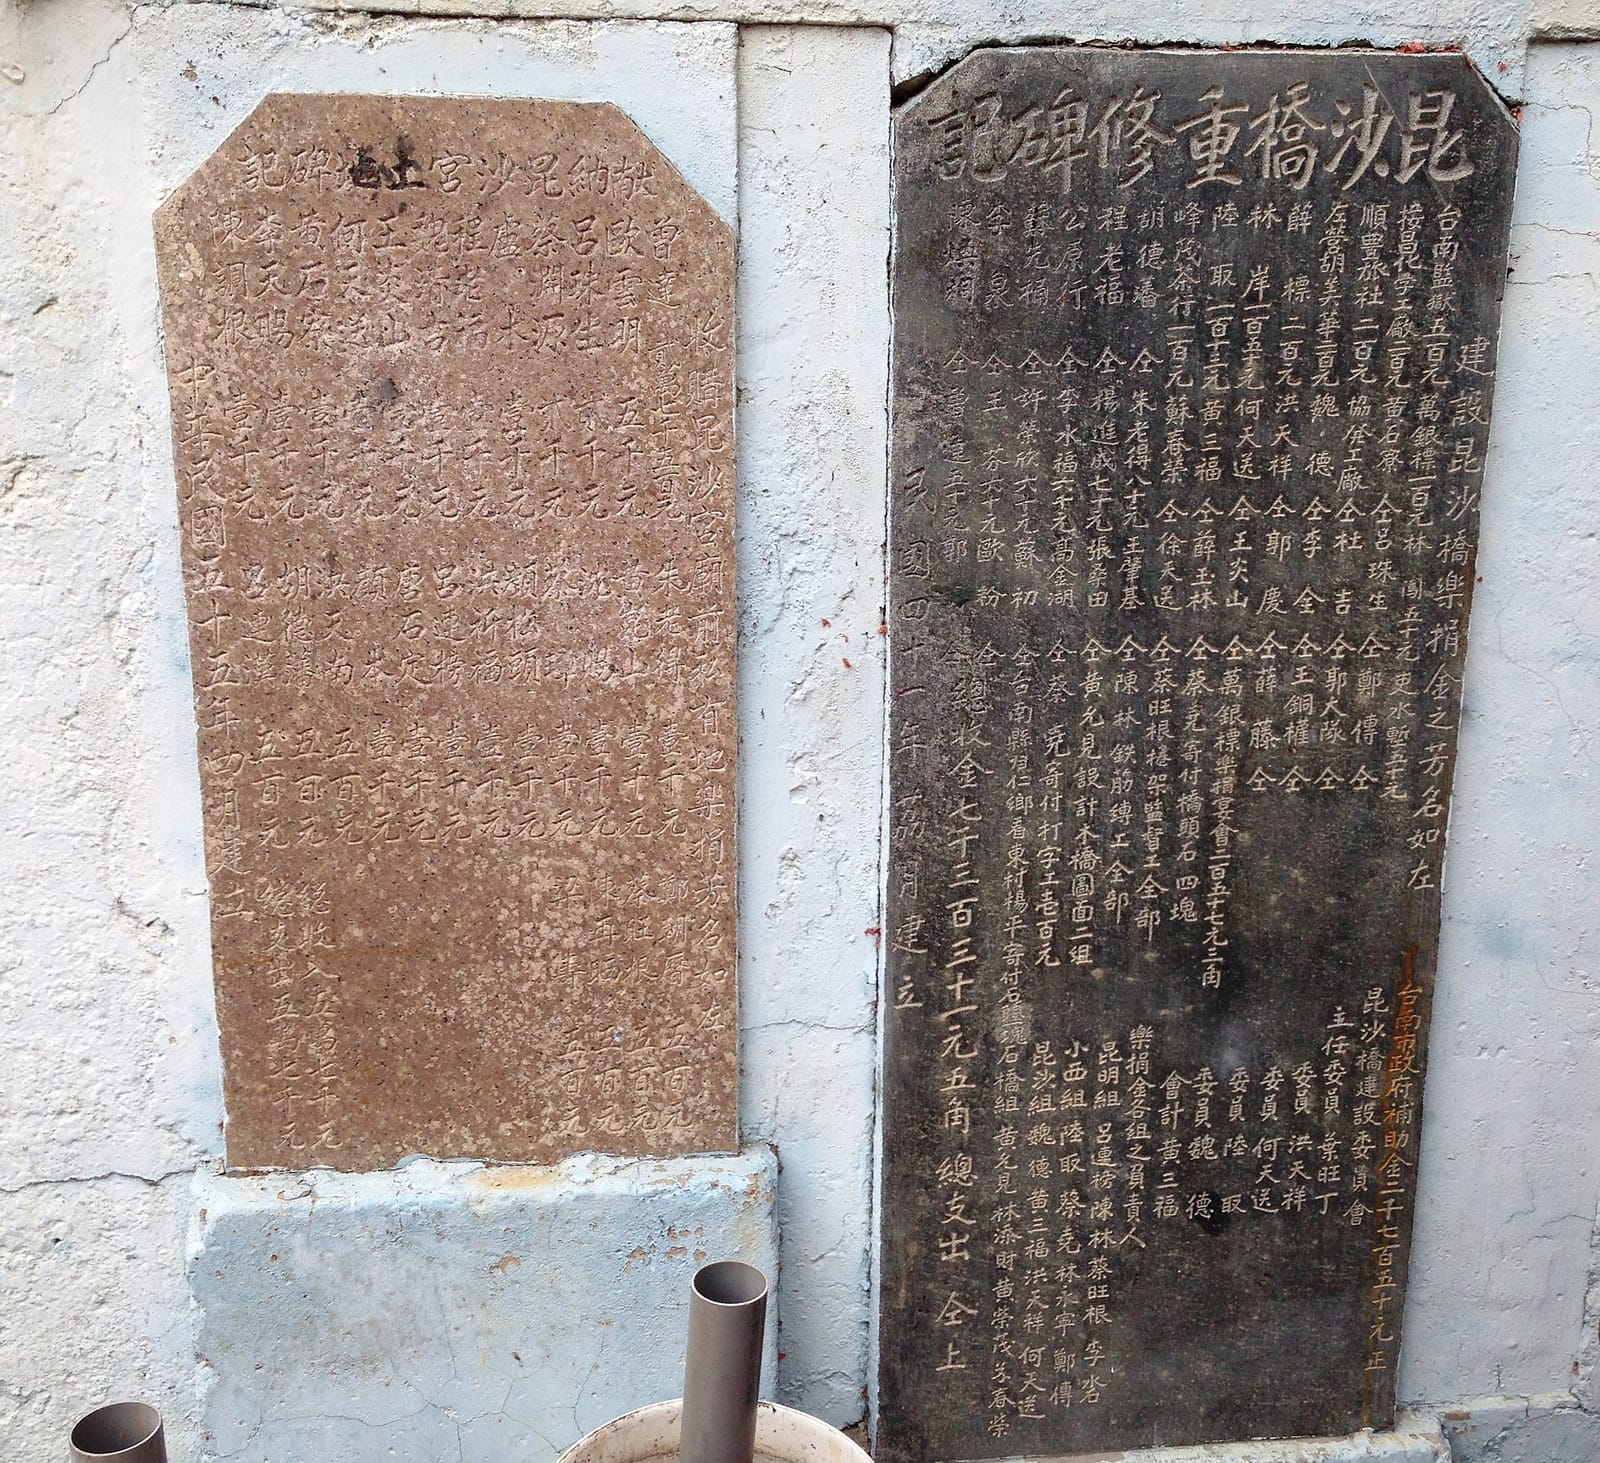 昆沙橋重修碑記
建設昆沙橋樂捐金之芳名如左
台南市政府補助金二千七百五十元正
台南監獄五百元 萬銀標一百元 林闖五十元 吏水塹五十元
接昆化學工廠二百元 黃石寮 仝 呂珠生 仝 鄭傳 仝
順豐旅社二百元 協發工廠 仝 杜吉 仝 郭大隊 仝
左營胡美華二百元 魏德 仝 李全 仝 王銅權 仝
薛標二百元 洪天祥 仝 郭慶 仝 薛藤 仝
林岸一百五十元 何天送 仝 王炎山 仝 萬銀標樂捐宴會二百五十七元三角
陸取一百二十元 黃三福 仝 薛玉林 仝 蔡堯寄付橋頭石四塊
峰茂茶行一百元 蘇春榮 仝 徐天送 仝 蔡旺根捲架監督工全部
胡德潘 仝 朱老得八十元 王肇基 仝 陳林鉄筋縛工全部
程老福 仝 楊進成七十元 張桑田 仝 黃允見設計本橋圖面二組
公原行 仝 李水福六十元 葛金湖 仝 蔡堯寄付打字工壱百元
蘇允桶 仝 許榮欣六十元 蘇初 仝 台南縣歸仁鄉看東村楊平寄付石塊
李泉 仝 王芬六十元 歐粉 仝
陳 仝 曾達五十元 郭 仝
昆沙橋建設委員會
主任委員 葉旺丁
委員 洪天祥
委員 何天送
委員 陸取
委員 魏德
會計 黃三福
樂捐金各組之負責人
昆明組 呂連榜 陳林 蔡旺根 李水
小西組 陸取 蔡堯 林永寧 鄭傳
昆沙組 魏德 黃三福 洪天祥 何天送
石橋組 黃允見 林添財 黃榮茂 李春榮
總收金七千三百三十一元五角 總支出 仝上
民國四十一年荔月建立
獻納昆沙宮土地碑記
收購昆沙宮廟前私有地樂捐芳名如左
曾達 貳萬七千五百元 朱老得 壹千元 鄭 五百元
歐雲明 五千元 黃 山 壹千元 蔡旺根 五百元
呂珠生 貳千元 沈賜 壹千元 陳再 五百元
蔡潤源 貳千元 蔡 壹千元 梁 五百元
盧木 壹千元 顏松頭 壹千元
程老福 壹千元 洪 福 壹千元
魏海吉 壹千元 呂連榜 壹千元
王炎山 壹千元 唐石定 壹千元
何天送 壹千元 顏 本 壹千元
黃石寮 壹千元 洪天 五百元 總收入五萬七千元
李天賜 壹千元 胡德潘 五百元 總支出五萬七千元
陳調根 壹千元 呂連漢 五百元
中華民國五十五年四月建立